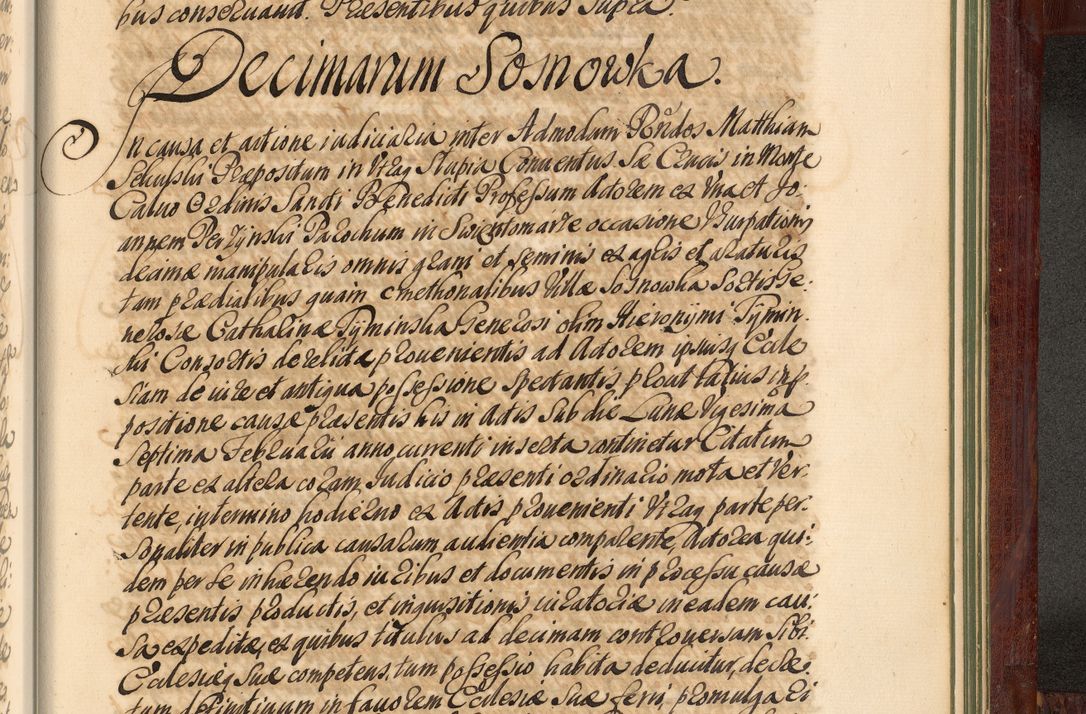 bus conservavit. Præsentibus quibus supra.
Decimarum Sosnowka.
In causa et actione iudiciaria inter Admodum Rndos Matthiam
Præpositum in Utraq Slupia Conventus Sæ Crucis in Monte
Calvo Ordinis Sancti Benedicti Professum Actorem ex Una et Jo:
annem Perzynski Parochum in Swientomarze occasione Usurpationis
decimæ manipularis omnis grani et seminis ex agris et araturis
tam prædialibus quam cmethonalibus Villæ Sosnowka Sortis Ge:
nerosæ Catharinæ Tyminska Generosi olim Hieronymi Tymin:
ski Consortis derelictæ provenientis ad Actorem ipsiusq Eccle
siam de iure et antiqua possessione spectantis prout latius in
positione causæ præsentis his in Actis sub die Lunæ Vigesima
Septima Februarii anno currenti inserta continetur Citatum
parte ex altera coram Judicio præsenti ordinario mota et ver:
tente, in termino hodierno ex Actis provenienti Utraq parte per:
sonaliter in publica causarum audientia comparente, Actorea qui:
dem per se inhærendo iuribus et documentis in processu causæ
præsentis productis, et inquisitionis iuratoriæ in eadem cau:
sa expeditæ, ex quibus titulus ad decimam controversam sibi
Ecclesiæq suæ competens, tum possessio habita deducitur, decre:
tum definitivum in favorem Ecclesiæ suæ ferri, promulgari